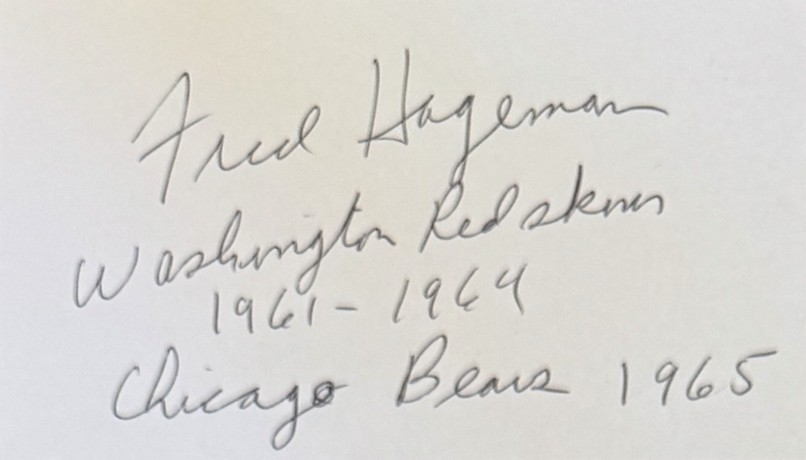 Fred Hageman
Washington Redskins
1961-1964
Chicago Bears 1965